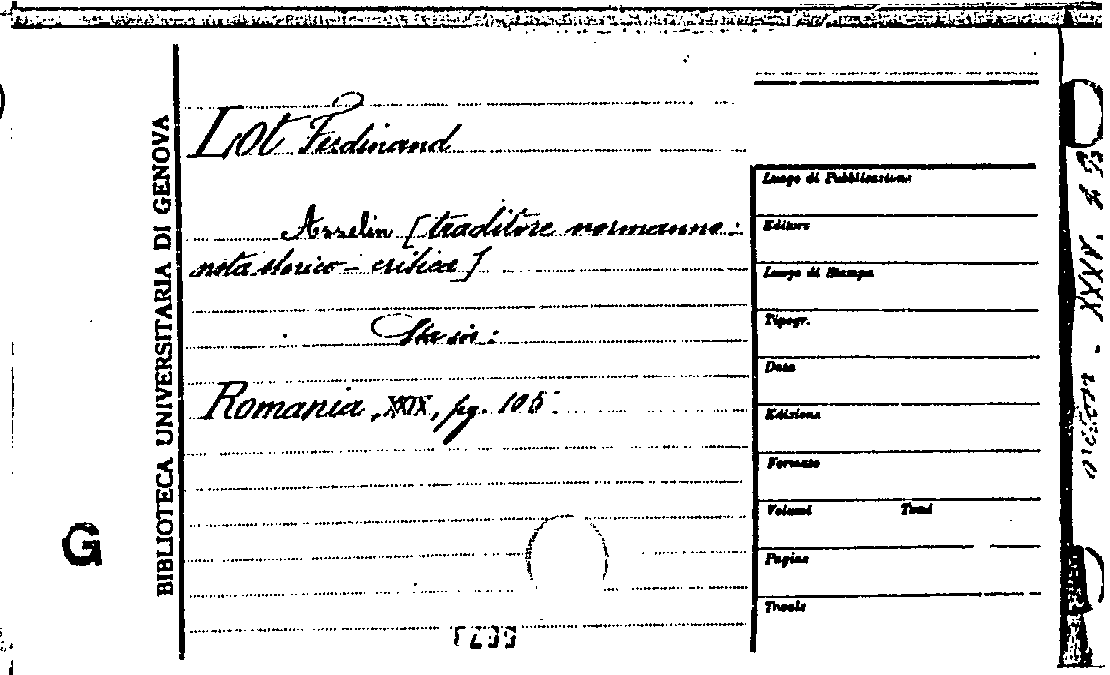 Lot Ferdinand
Asselin [traditore normanno:
nota storico-critica]
Sta in:
Romania, XXIX, pg. 105.
BIBLIOTECA UNIVERSITARIA DI GENOVA
G
Luogo di Pubblicazione
Editore
Luogo di Stampa
Tipogr.
Data
Edizione
Formato
Volumi Tomi
Pagine
Tavole